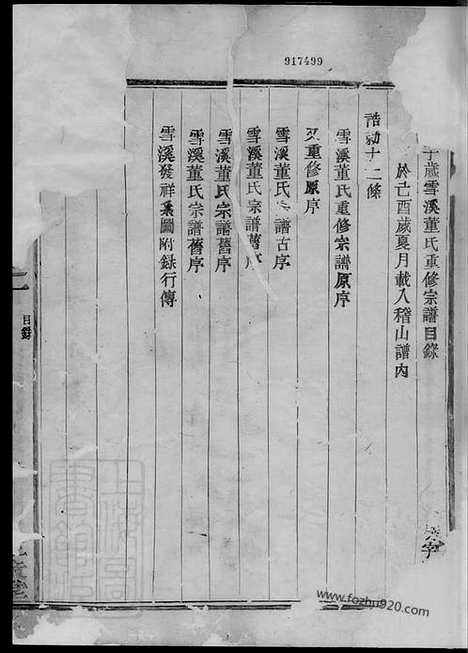 917499
子歲雪溪董氏重修宗譜目錄
於己酉歲夏月載入稽山譜內
誥勅十二條
雪溪董氏重修宗譜原序
又重修原序
雪溪董氏宗譜古序
雪溪董氏宗譜舊序
雪溪董氏宗譜舊序
雪溪董氏宗譜舊序
雪溪發祥系圖附錄行傳
目錄
www.fozhu920.com